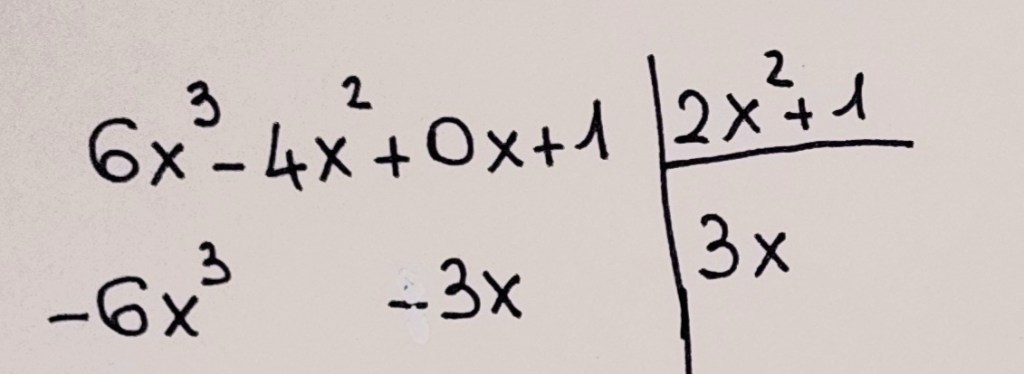 6x³ - 4x² + 0x + 1 | 2x² + 1
-6x³ - 3x | 3x